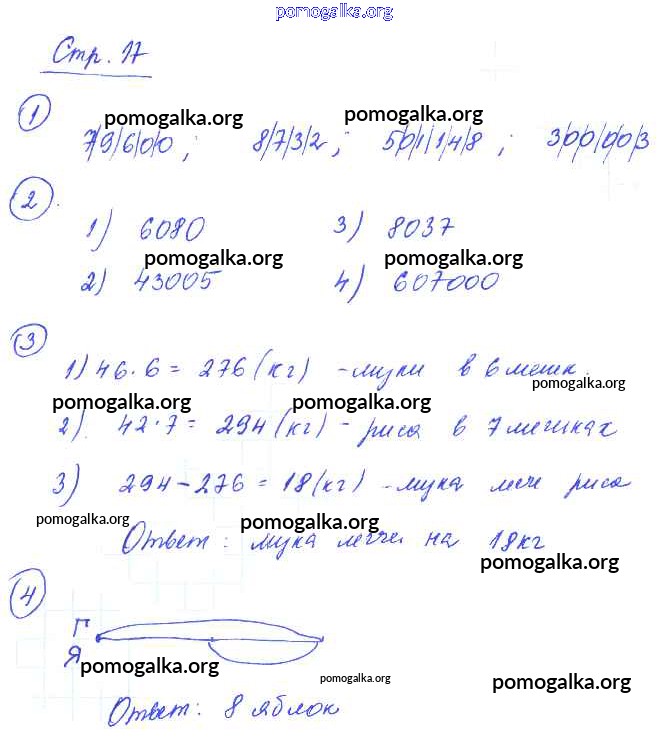 pomogalka.org
Стр. 17
pomogalka.org pomogalka.org
1 7/9/6/0/0 ; 8/7/3/2 ; 5/0/1/1/4/8 ; 3/0/0/0/0/3
2.
1) 6080 3) 8037
pomogalka.org pomogalka.org
2) 43005 4) 607000
3
1) 46·6 = 276 (кг) - муки в 6 мешк.
pomogalka.org
pomogalka.org pomogalka.org
2). 42·7 = 294 (кг) - риса в 7 мешках
3) 294 - 276 = 18 (кг) - мука легче риса
pomogalka.org pomogalka.org
Ответ: мука легче на 18 кг
pomogalka.org
4
Г
Я
pomogalka.org pomogalka.org pomogalka.org
Ответ: 8 яблок